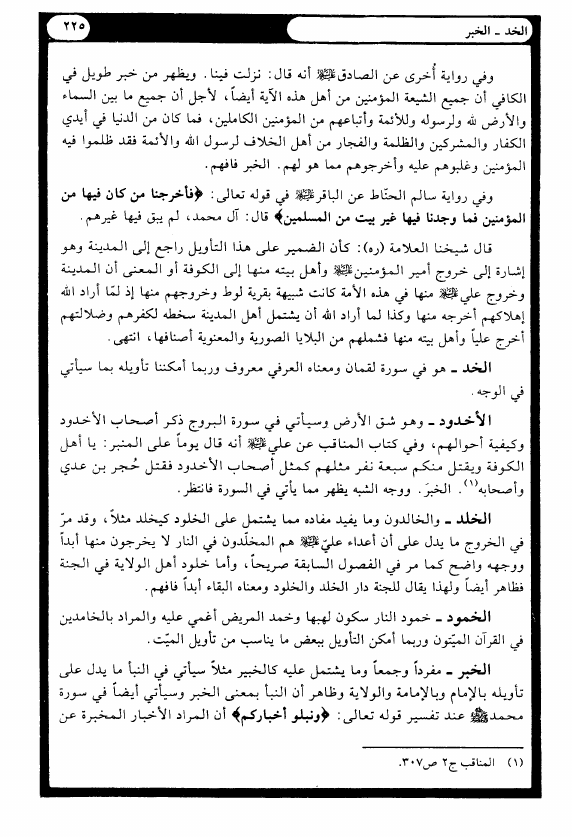 الخد ـ الخبر
٢٢٥
وفي رواية أُخرى عن الصادق ﷺ أنه قال: نزلت فينا. ويظهر من خبر طويل في
الكافي أن جميع الشيعة المؤمنين من أهل هذه الآية أيضاً، لأجل أن جميع ما بين السماء
والأرض لله ولرسوله وللأئمة وأتباعهم من المؤمنين الكاملين، فما كان من الدنيا في أيدي
الكفار والمشركين والظلمة والفجار من أهل الخلاف لرسول الله والأئمة فقد ظلموا فيه
المؤمنين وغلبوهم عليه وأخرجوهم مما هو لهم. الخبر فافهم.
وفي رواية سالم الحنّاط عن الباقر ﷺ في قوله تعالى: ﴿فأخرجنا من كان فيها من
المؤمنين فما وجدنا فيها غير بيت من المسلمين﴾ قال: آل محمد، لم يبق فيها غيرهم.
قال شيخنا العلامة (ره): كأن الضمير على هذا التأويل راجع إلى المدينة وهو
إشارة إلى خروج أمير المؤمنين ﷺ وأهل بيته منها إلى الكوفة أو المعنى أن المدينة
وخروج علي ﷺ منها في هذه الأمة كانت شبيهة بقرية لوط وخروجهم منها إذ لمّا أراد الله
إهلاكهم أخرجه منها وكذا لما أراد الله أن يشتمل أهل المدينة سخطه لكفرهم وضلالتهم
أخرج علياً وأهل بيته منها فشملهم من البلايا الصورية والمعنوية أصنافها، انتهى.
الخد ـ هو في سورة لقمان ومعناه العرفي معروف وربما أمكننا تأويله بما سيأتي
في الوجه.
الأخدود ـ وهو شق الأرض وسيأتي في سورة البروج ذكر أصحاب الأخدود
وكيفية أحوالهم، وفي كتاب المناقب عن علي ﷺ أنه قال يوماً على المنبر: يا أهل
الكوفة ويقتل منكم سبعة نفر مثلهم كمثل أصحاب الأخدود فقتل حُجر بن عدي
وأصحابه(١). الخبرَ. ووجه الشبه يظهر مما يأتي في السورة فانتظر.
الخلد ـ والخالدون وما يفيد مفاده مما يشتمل على الخلود كيخلد مثلاً، وقد مرّ
في الخروج ما يدل على أن أعداء عليّ ﷺ هم المخلّدون في النار لا يخرجون منها أبداً
ووجهه واضح كما مر في الفصول السابقة صريحاً، وأما خلود أهل الولاية في الجنة
فظاهر أيضاً ولهذا يقال للجنة دار الخلد والخلود ومعناه البقاء أبداً فافهم.
الخمود ـ خمود النار سكون لهبها وخمد المريض أغمي عليه والمراد بالخامدين
في القرآن الميّتون وربما أمكن التأويل ببعض ما يناسب من تأويل الميّت.
الخبر ـ مفرداً وجمعاً وما يشتمل عليه كالخبير مثلاً سيأتي في النبأ ما يدل على
تأويله بالإمام وبالإمامة والولاية وظاهر أن النبأ بمعنى الخبر وسيأتي أيضاً في سورة
محمد ﷺ عند تفسير قوله تعالى: ﴿ونبلو أخباركم﴾ أن المراد الأخبار المخبرة عن
(١) المناقب ج٢ ص٣٠٧.